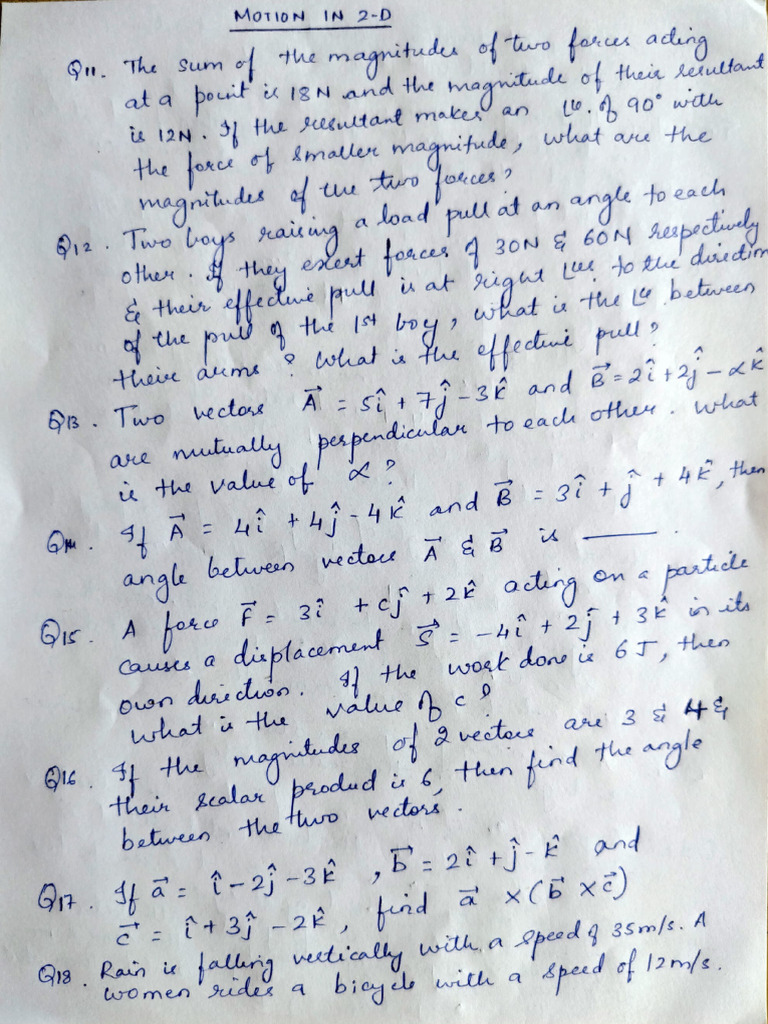 MOTION IN 2-D
Q11. The sum of the magnitudes of two forces acting
at a point is 18N and the magnitude of their resultant
is 12N. If the resultant makes an L le. of 90° with
the force of smaller magnitude, what are the
magnitudes of the two forces?
Q12. Two boys raising a load pull at an angle to each
other. If they exert forces of 30N & 60N respectively
& their effective pull is at right Les to the direction
of the pull of the 1st boy, what is the Le between
their arms? What is the effective pull?
Q13. Two vectors A⃗ = 5î + 7ĵ - 3k̂ and B⃗ = 2î + 2ĵ - αk̂
are mutually perpendicular to each other. What
is the value of α?
Q14. If A⃗ = 4î + 4ĵ - 4k̂ and B⃗ = 3î + ĵ + 4k̂, then
angle between vectors A⃗ & B⃗ is ______.
Q15. A force F⃗ = 3î + cĵ + 2k̂ acting on a particle
causes a displacement S⃗ = -4î + 2ĵ + 3k̂ in its
own direction. If the work done is 6J, then
what is the value of c?
Q16. If the magnitudes of 2 vectors are 3 & 4 &
their scalar product is 6, then find the angle
between the two vectors.
Q17. If a⃗ = î - 2ĵ - 3k̂, b⃗ = 2î + ĵ - k̂ and
c⃗ = î + 3ĵ - 2k̂, find a⃗ × (b⃗ × c⃗)
Q18. Rain is falling vertically with a speed of 35m/s. A
women rides a bicycle with a speed of 12m/s.